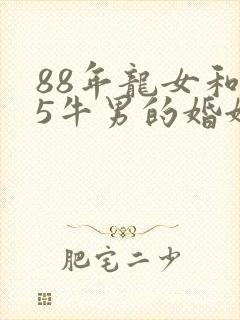 88年龍女和
5牛男的婚姻
肥宅二少